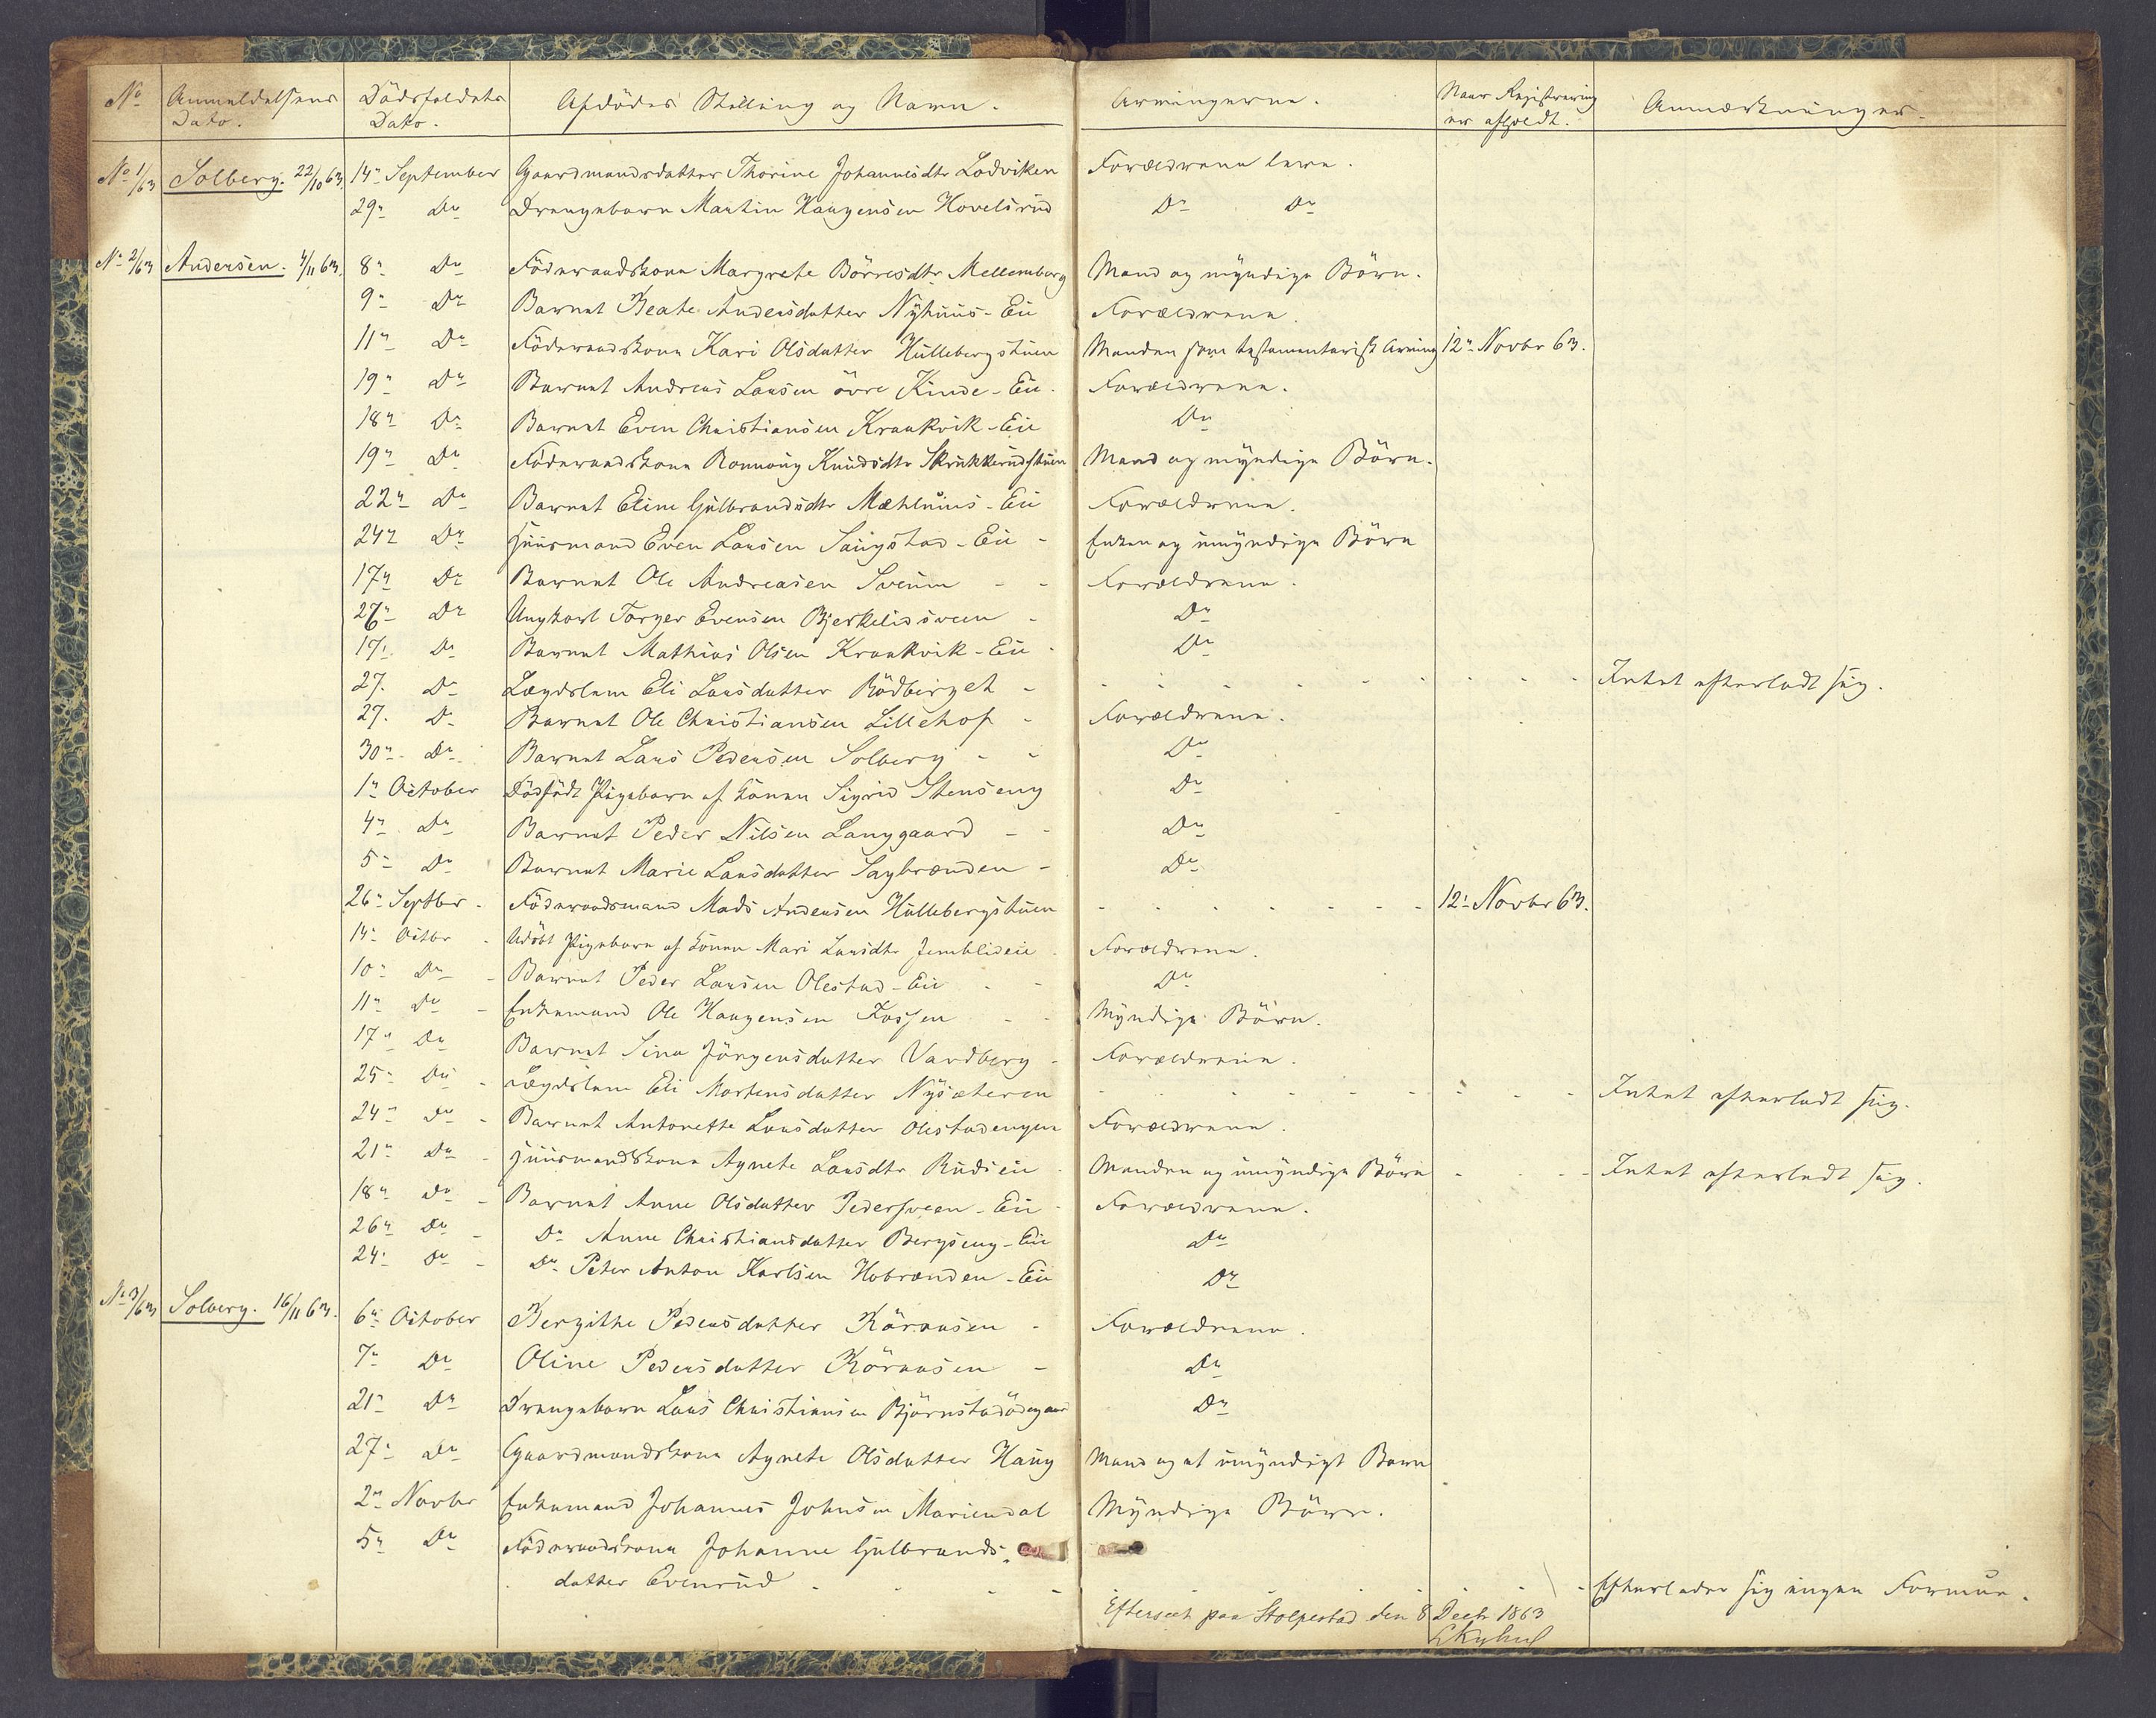 No Anmeldelsens Dato. Dödsfaldets Dato. Afdödes Stilling og Navn. Arvingerne. Naar Registrering er afholdt. Anmærkninger.
No 1/63 Solberg. 22/10 63. 14n September Gaardmandsdatter Thorine Johannesdtr Lodviken Forældrene leve.
29n Do Drengebarn Martin Haagensen Hovelsrud Do Do
No 2/63 Andersen. 4/11 63. 8n Do Föderaadskone Margrete Börresdtr Mellemberg Mand og myndige Börn.
9n Do Barnet Beate Andersdatter Nyhuus-Eie Forældrene.
11n Do Föderaadskone Kari Olsdatter Hullebergstuen Manden som testamentarisk Arving 12n Novbr 63.
19n Do Barnet Andreas Larsen övre Kinde-Eie. Forældrene.
18n Do Barnet Even Christiansen Kraakvik-Eie Do
19n Do Föderaadskone Ronnoug Knudsdtr Skrukkerudstuen Mand og myndige Börn.
22n Do Barnet Eline Gulbrandsdtr Mæhluus-Eie Forældrene.
24n Do Huusmand Even Larsen Saugstad-Eie - Enken og umyndige Börn
17n Do Barnet Ole Andreasen Sveum - - Forældrene.
26n Do Ungkarl Torger Evensen Bjerkelidsveen - Do
17. Do Barnet Mathias Olsen Kraakvik-Eie - Do
27. Do Lægdslem Eli Larsdatter Rödberget - - - - - - - - - Intet efterladt sig.
27. Do Barnet Ole Christiansen Lillehof - Forældrene.
30n Do Barnet Lars Pedersen Solberg - - Do
1n October Dödfödt Pigebarn af Konen Sigrid Stenseng Do
4n Do Barnet Peder Nilsen Langgaard - - Do
5n Do Barnet Marie Larsdatter Sagbraenden - Do
26n Septbr - Föderaadsmand Mads Andersen Hullebergstuen - - - - - - - 12n Novbr 63.
14n Octbr - Udöbt Pigebarn af Konen Mari Larsdtr Jemblideie - Forældrene.
10n Do - Barnet Peder Larsen Olestad-Eie - - Do
11n Do - Enkemand Ole Haagensen Fossen - - Myndige Börn.
17n Do Barnet Sina Jörgensdatter Vardberg - Forældrene.
25n Do - Lægdslem Eli Mortensdatter Nysæteren - - - - - - - - - Intet efterladt sig.
24n Do - Barnet Antonette Larsdatter Olestadengen Forældrene.
21n Do - Huusmandskone Agnete Larsdtr Rudseie - Manden og umyndige Börn - - - Intet efterladt sig.
18n Do - Barnet Anne Olsdatter Pedersveen-Eie - Forældrene.
26n Do - Do Anne Christiansdatter Bergseng-Eie Do
24n Do - Do Peter Anton Karlsen Hobraenden-Eie Do
No 3/63 Solberg. 16/11 63. 6n October Bergithe Pedersdatter Köraasen - Forældrene.
7n Do Oline Pedersdatter Köraasen - Do
21n Do Drengebarn Lars Christiansen Björnstadödegaard Do
27n Do Gaardmandskone Agnete Olsdatter Haug Mand og et umyndigt Barn
2n Novbr Enkemand Johannes Johnsen Mariendal Myndige Börn.
5n Do Föderaadskone Johanne Gulbrands-
datter Evensrud - - - - - - - Efterlader sig ingen Formue.
Efterseet paa Stolpestad den 8 Decbr 1863